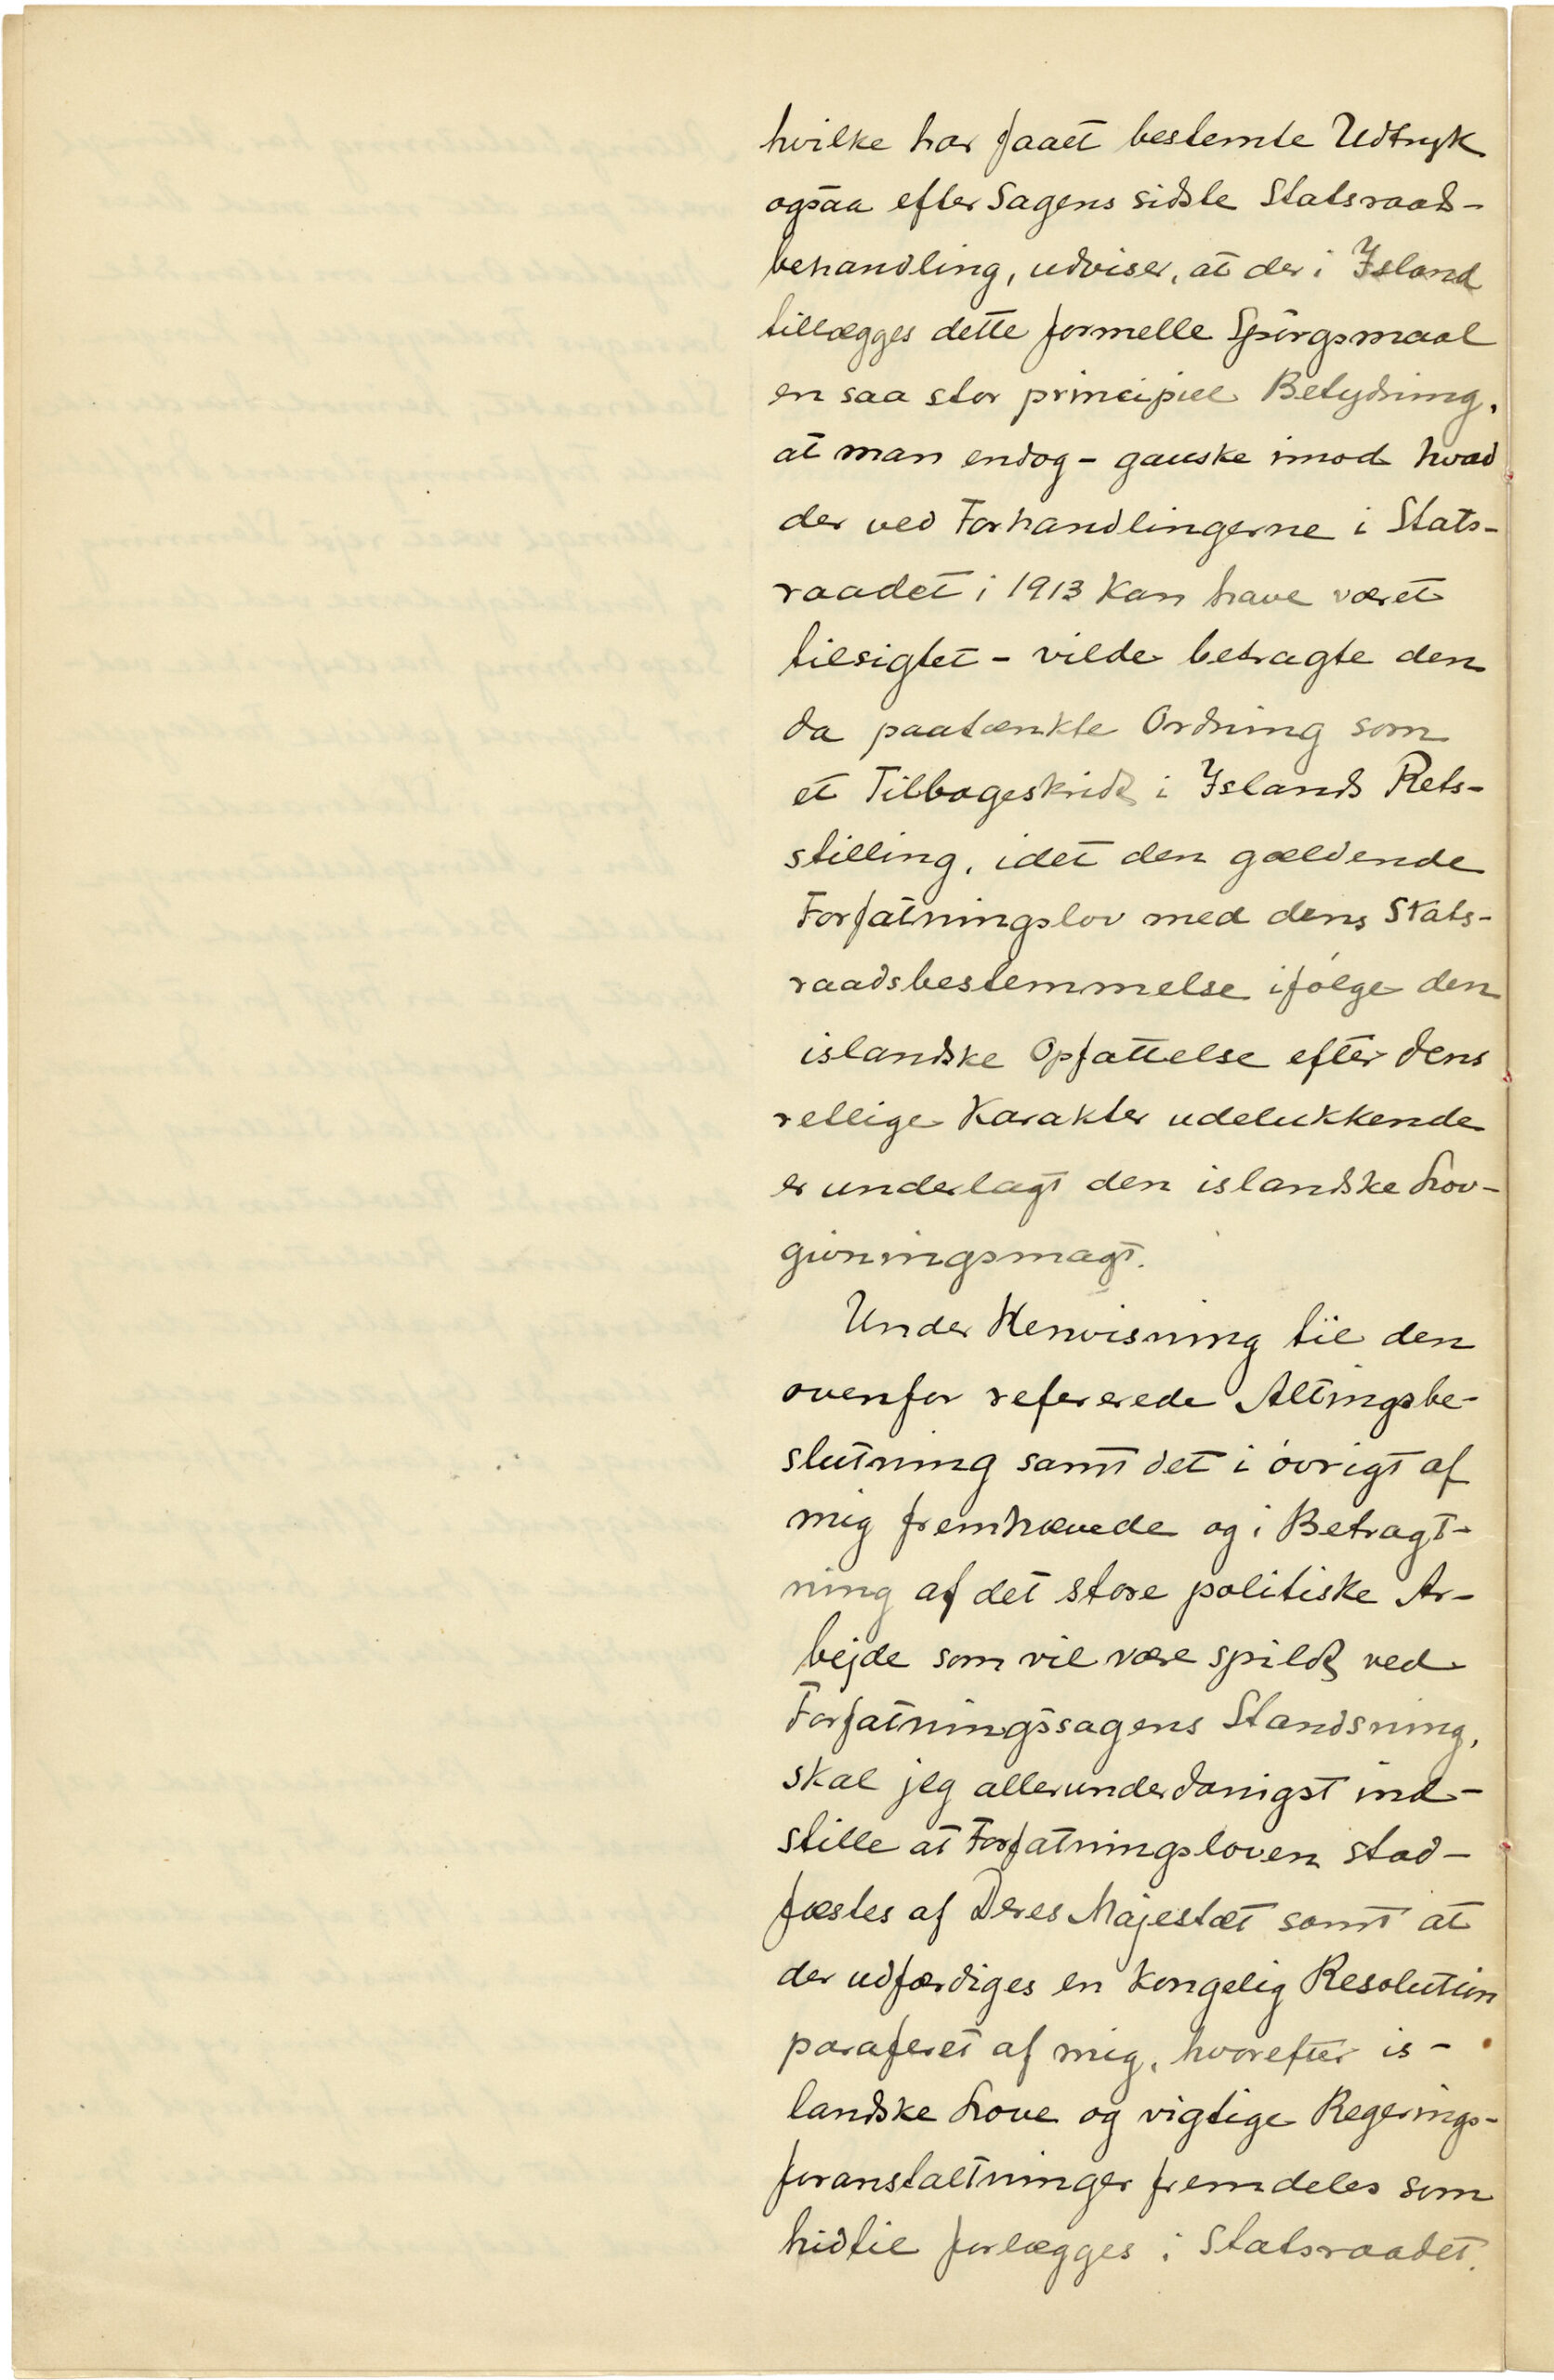 hvilke har faaet bestemte Udtryk
ogsaa efter Sagens sidste Statsraads-
behandling, udviser, at der i Island
tillægges dette formelle Spörgsmaal
en saa stor principiel Betydning,
at man endog - ganske imod hvad
der ved Forhandlingerne i Stats-
raadet i 1913 kan have været
tilsigtet - vilde betragte den
da paatænkte Ordning som
et Tilbageskridt i Islands Rets-
stilling, idet den gældende
Forfatningslov med dens Stats-
raadsbestemmelse ifólge den
islandske Opfattelse efter dens
retlige Karakter udelukkende
er underlagt den islandske Lov-
givningsmagt.
Under Henvisning til den
ovenfor refererede Altingsbe-
slutning samt det i óvrigt af
mig fremhævede og i Betragt-
ning af det store politiske Ar-
bejde som vil være spildt ved
Forfatningssagens Standsning,
skal jeg allerunderdanigst ind-
stille at Forfatningsloven stad-
fæstes af Deres Majestæt samt at
der udfærdiges en kongelig Resolution
paraferet af mig, hvorefter is-
landske Love og vigtige Regerings-
foranstaltninger fremdeles som
hidtil forlægges i Statsraadet.